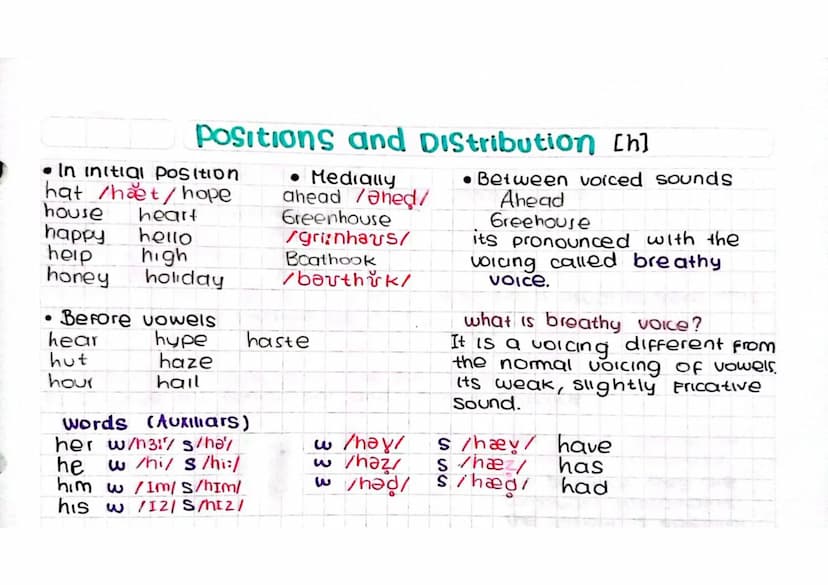 Positions and Distribution [h]
• In initial position
hat /hæ̆t/ hope
house heart
happy hello
help high
honey holiday
• Medially
ahead /əhed̥/
Greenhouse
/griːnhaʊs/
Boathook
/bəʊthʊ̆k/
• Between voiced sounds
Ahead
Greehouse
its pronounced with the
voicing called breathy
voice.
• Before vowels
hear hype haste
hut haze
hour hail
what is breathy voice?
It is a voicing different from
the normal voicing of vowels.
Its weak, slightly fricative
sound.
words (Auxiliars)
her w /hɜːʳ/ s /həʳ/
he w /hi/ s /hiː/
him w /ɪm/ s /hɪm/
his w /ɪz/ s /hɪz/
w /həv̥/ s /hæv̥/ have
w /həz̥/ s /hæz̥/ has
w /həd̥/ s /hæd̥/ had